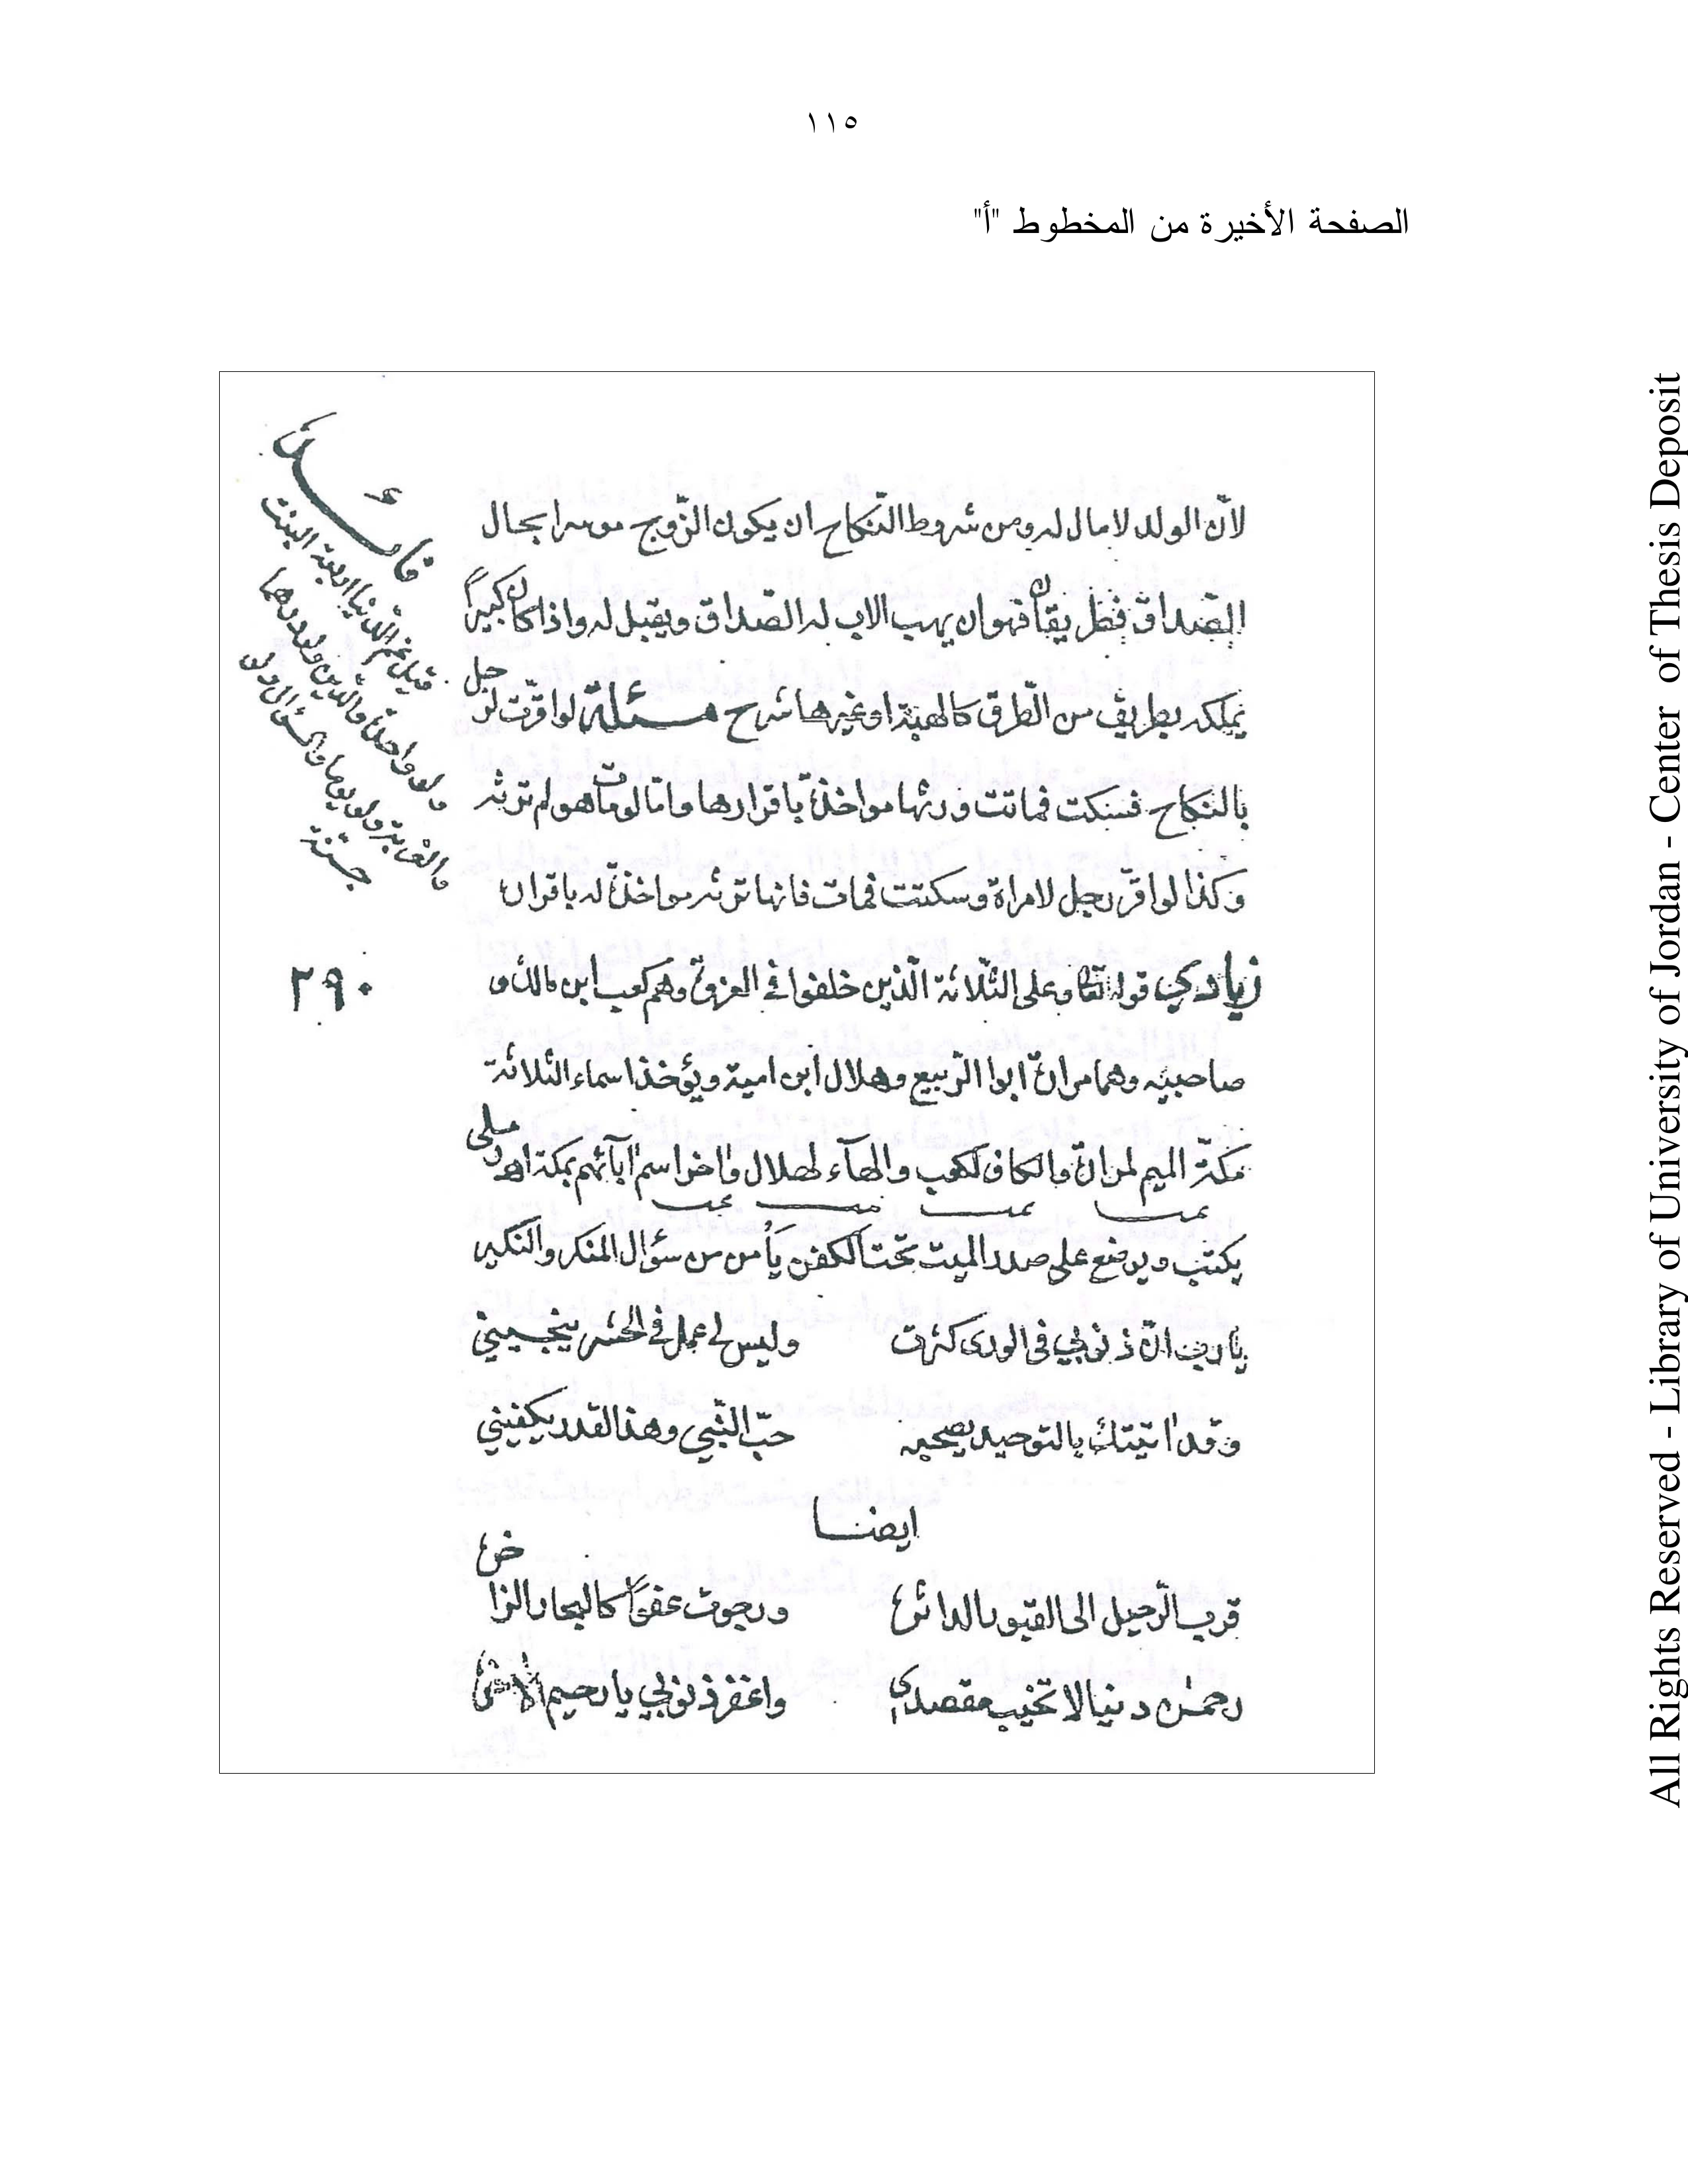 ١١٥
الصفحة الأخيرة من المخطوط "أ"
لأنّ الولد لا مال له ومن شروط النّكاح ان يكون الزّوج موسرا بحال
الصّداق فطريقان فهو ان يهب الاب له الصّداق ويقبل له واذا كان كبيراً
يملكه بطريق من الطّرق كالهبة او غيرها شرح مسئلة لو اقرّت لرجل
بالنّكاح فسكت فماتت ورثها مواخذة باقرارها وامّا لو مات هو لم ترثه
وكذا لو اقرّ رجل لامراة وسكتت فمات فانها ترثه مواخذة له باقراره
زيادي قوله تعا وعلى الثّلاثة الّذين خلفوا في الغزوة وهم كعب ابن مالك و
صاحبيه وهما مرارة ابوا الرّبيع وهلال ابن امية ويؤخذ اسماء الثلاثة
مكة الميم لمرارة والكاف لكعب والهآء لهلال واخر اسم آبائهم بمكة اهـ
يكتب ويوضع على صدر الميت تحت الكفن يأمن من سؤال المنكر والنكير
يا رب انّ ذنوبي في الورى كثرت وليس لي عمل في الحشر ينجيني
وقد اتيتك بالتوحيد يصحبه حبّ النّبي وهذا القدر يكفيني
ايضا
قرب الرّحيل الى القبور الداثرة ورجوت عفواً كالبحار الزاخرة
رحمن دنيا لا تخيب مقصدي واغفر ذنوبي يا رحيم الآخرة
فائدة
قيل غم الدّنيا اربعة البنت
ولو واحدة والدّين ولو درهما
والغربة ولو يوما والسؤال ولو
حبة
٢٩٠
All Rights Reserved - Library of University of Jordan - Center of Thesis Deposit